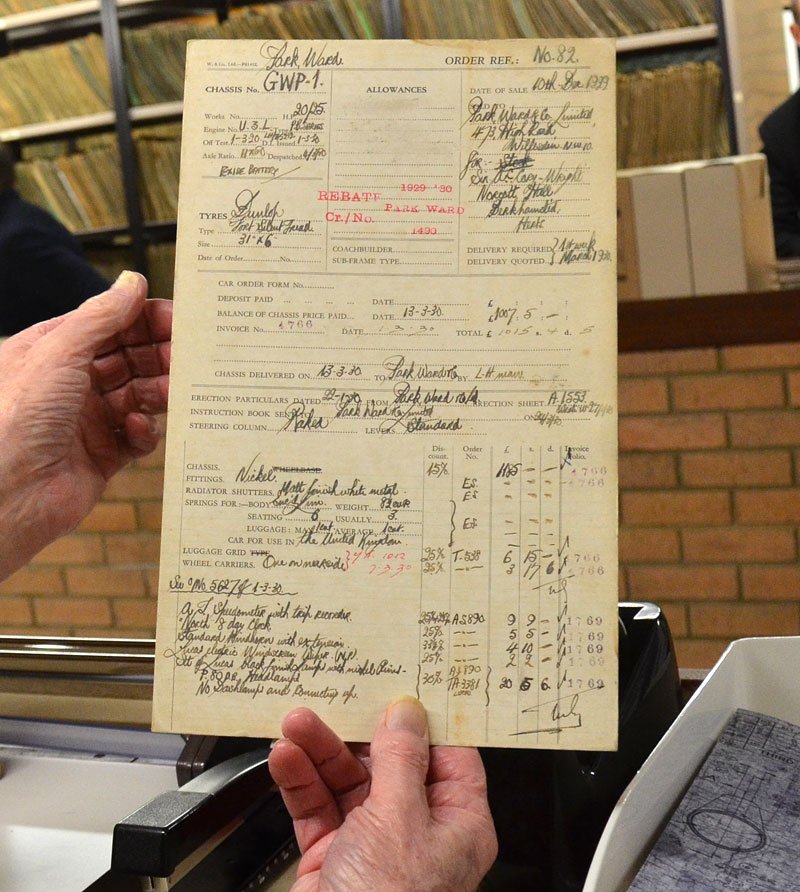 Park Ward.
ORDER REF.: No. 82.
CHASSIS No. GWP-1.
ALLOWANCES
DATE OF SALE 10th Dec 1929
Works No. H.P. 20/25.
Engine No. U.3.L
Off Test 1-3-30 D.I. Issued 1-3-30
Axle Ratio Despatched
EXIDE BATTERY
Park Ward & Co Limited,
473 High Road
Willesden N.W.10.
for- Stock
Norcott Hall
Berkhamsted,
Herts
REBATE 1929-'30
PARK WARD
Cr./No. 1490
TYRES Dunlop
Type Fort Silent Tread
Size 31" x 6
Date of Order No.
COACHBUILDER
SUB-FRAME TYPE
DELIVERY REQUIRED 1st week
DELIVERY QUOTED March 1930.
CAR ORDER FORM No.
DEPOSIT PAID DATE £ : :
BALANCE OF CHASSIS PRICE PAID DATE 13-3-30. £ 1007 : 5 : -
INVOICE No. 4766 DATE 1 3-30 TOTAL £ 1015 s. 4 d. 5
CHASSIS DELIVERED ON 13-3-30 TO Park Ward & Co BY
ERECTION PARTICULARS DATED 22-1-30 FROM Park Ward ERECTION SHEET A.1553
INSTRUCTION BOOK SENT Park Ward & Co Limited ON
STEERING COLUMN Raked LEVERS Standard
Discount. Order No. £ s. d. Invoice Folio.
CHASSIS. WHEELBASE 15% 1185 - - 4766
FITTINGS. Nickel. ES - - - 4766
RADIATOR SHUTTERS Matt finish white metal. ES - -
SPRINGS FOR:—BODY Encl'd Lim. WEIGHT
SEATING 6 USUALLY 3. ES
LUGGAGE: MAX 1cwt AVERAGE 1cwt.
CAR FOR USE IN the United Kingdom
LUGGAGE GRID TYPE 25% T.528 6 15 - 4766
WHEEL CARRIERS. One on nearside 25% 3 17 6 4766
7-3-30
See No. 5627 of 1-3-30.
A.T. Speedometer with trip recorder. A5890 9 9 - 4769
North 8 day Clock 25% 5 5 - 4769
Standard Mindhorn with extension. 33% 4 10 - 4769
Lucas electric Windscreen Wiper (N.P.) 25% 2 2 - 4769
Set of Lucas Black finish Lamps with nickel Rims- A5890
P80 Headlamps 30% TA3381 20 5 6 4769
No Dashlamps and Connecting up.